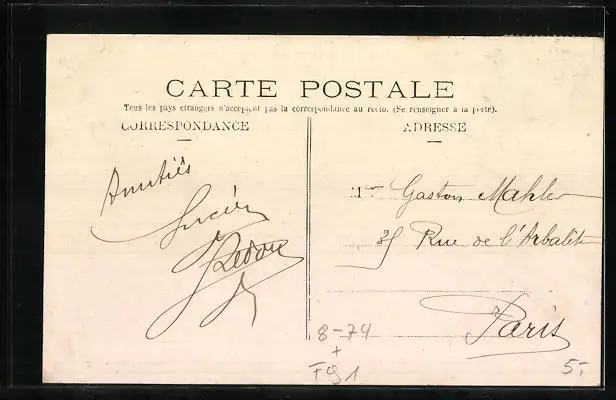 CARTE POSTALE
Tous les pays étrangers n'acceptent pas la correspondance au recto. (Se renseigner à la poste).
CORRESPONDANCE
ADRESSE
Amitiés
Lucien
Mr Gaston Mahler
Rue de l'Arbalète
Paris
8-74
+
F91
5-